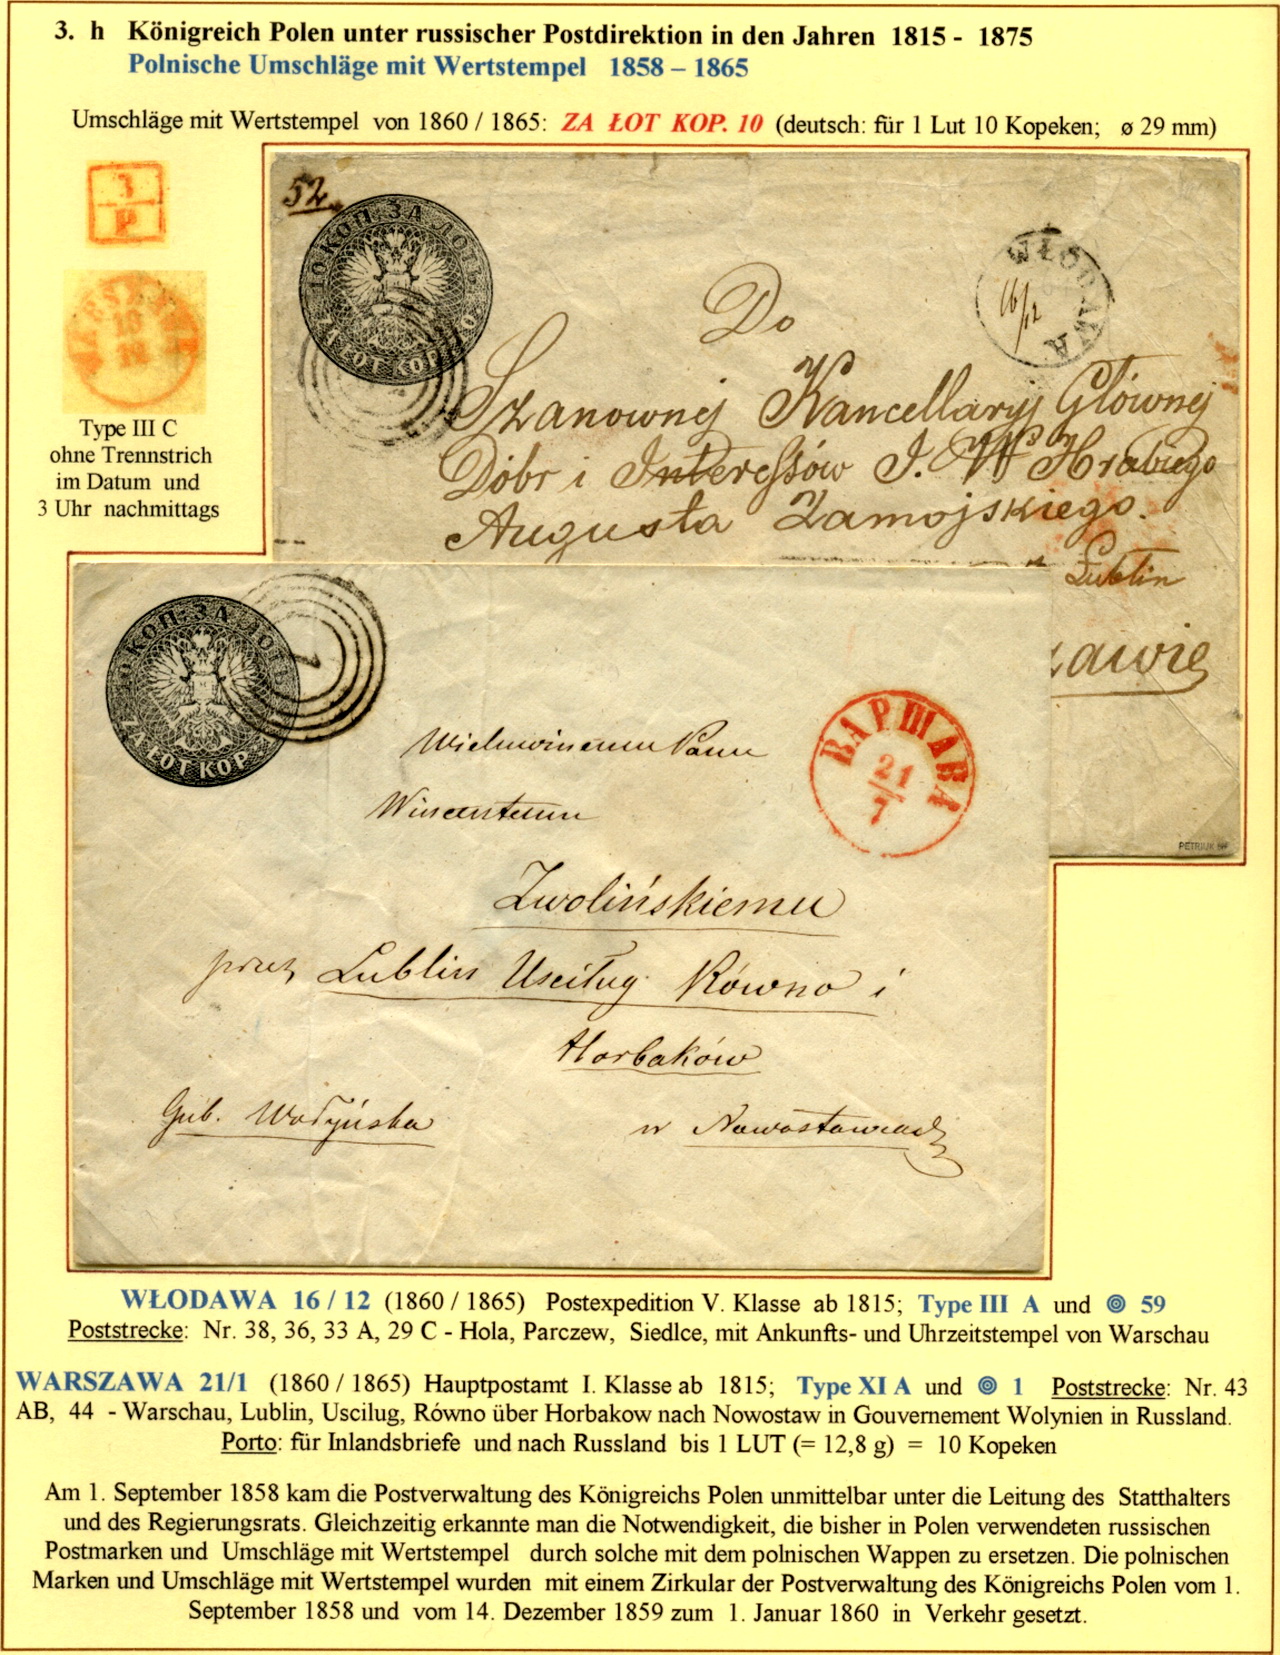 3. h Königreich Polen unter russischer Postdirektion in den Jahren 1815 - 1875
Polnische Umschläge mit Wertstempel 1858 – 1865
Umschläge mit Wertstempel von 1860 / 1865: ZA ŁOT KOP. 10 (deutsch: für 1 Lut 10 Kopeken; ø 29 mm)
3
P
10
Type III C
ohne Trennstrich
im Datum und
3 Uhr nachmittags
52
10 КОП. ЗА ЛОТЪ
ZA ŁOT KOP. 10
WŁODAWA
16/12
Do
Szanownej Kancellaryj Głównej
Dóbr i Interessów J. W Hrabiego
Augusta Zamojskiego.
Lublin
zawie
PETRIUK
10 КОП. ЗА ЛОТЪ
ZA ŁOT KOP.
1
ВАРШАВА
21
7
Wielmożnemu Panu
Wincentemu
Zwolińskiemu
przez Lublin Usciług Równo i
Horbaków
Gub. Wołyńska
w Nowostawiach
WŁODAWA 16 / 12 (1860 / 1865) Postexpedition V. Klasse ab 1815; Type III A und 59
Poststrecke: Nr. 38, 36, 33 A, 29 C - Hola, Parczew, Siedlce, mit Ankunfts- und Uhrzeitstempel von Warschau
WARSZAWA 21/1 (1860 / 1865) Hauptpostamt I. Klasse ab 1815; Type XI A und 1 Poststrecke: Nr. 43
AB, 44 - Warschau, Lublin, Uscilug, Równo über Horbakow nach Nowostaw in Gouvernement Wolynien in Russland.
Porto: für Inlandsbriefe und nach Russland bis 1 LUT (= 12,8 g) = 10 Kopeken
Am 1. September 1858 kam die Postverwaltung des Königreichs Polen unmittelbar unter die Leitung des Statthalters
und des Regierungsrats. Gleichzeitig erkannte man die Notwendigkeit, die bisher in Polen verwendeten russischen
Postmarken und Umschläge mit Wertstempel durch solche mit dem polnischen Wappen zu ersetzen. Die polnischen
Marken und Umschläge mit Wertstempel wurden mit einem Zirkular der Postverwaltung des Königreichs Polen vom 1.
September 1858 und vom 14. Dezember 1859 zum 1. Januar 1860 in Verkehr gesetzt.